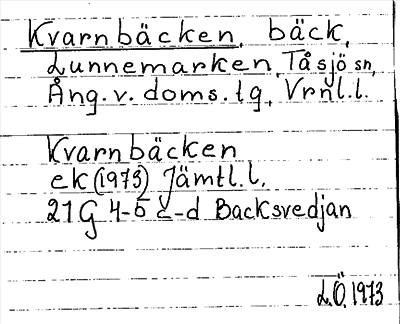 Kvarnbäcken, bäck,
Lunnemarken, Tåsjö sn,
Ång.v.doms.tg, Vrnl.l.
Kvarnbäcken
ek(1973) Jämtl.l.
21G 4-5 c-d Backsvedjan
L.Ö. 1973